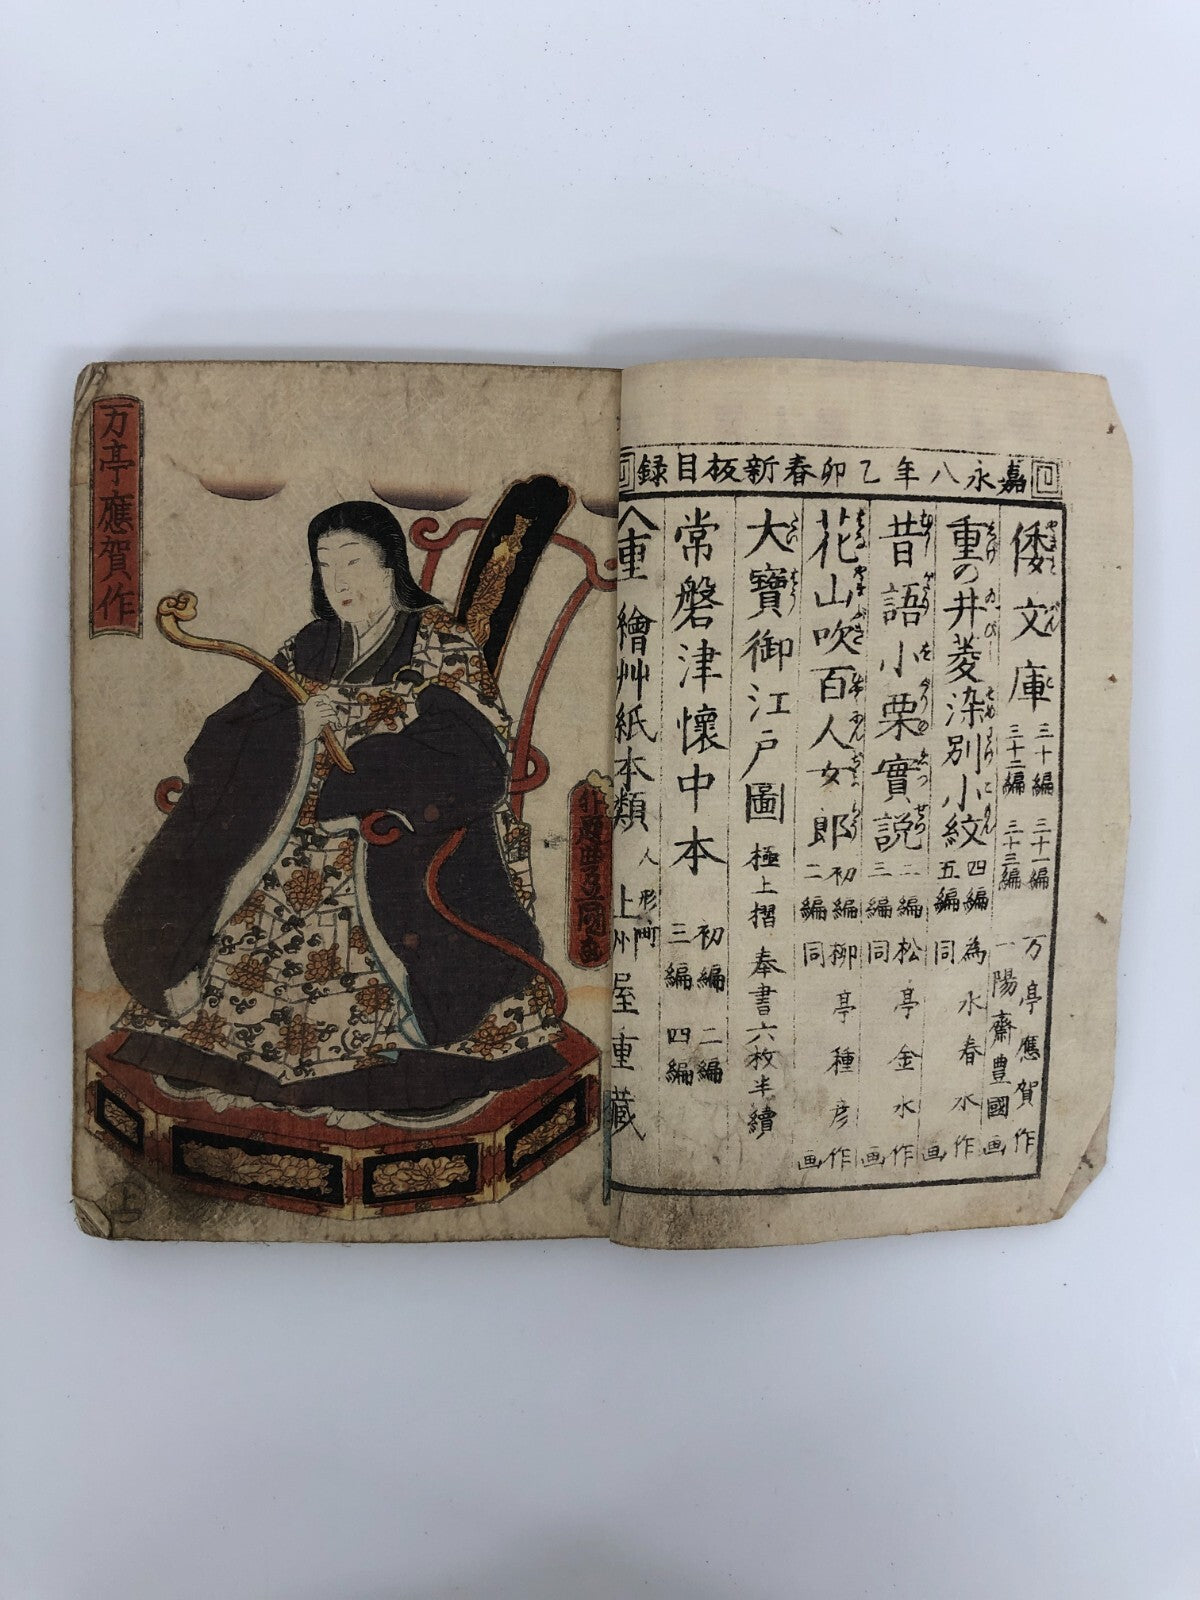 嘉永八年乙卯春新板目録
倭文庫 三十編 三十一編 三十二編 三十三編 万亭應賀作 一陽齋豊國画
重の井菱染別小紋 四編 五編 為永春水作 同画
昔語小栗實説 二編 三編 松亭金水作 同画
花山吹百人女郎 初編 二編 柳亭種彦作 同画
大寶御江戸圖 極上摺 奉書六枚半續
常磐津懷中本 初編 二編 三編 四編
繪艸紙本類 人形町 上州屋重藏
万亭應賀作
上